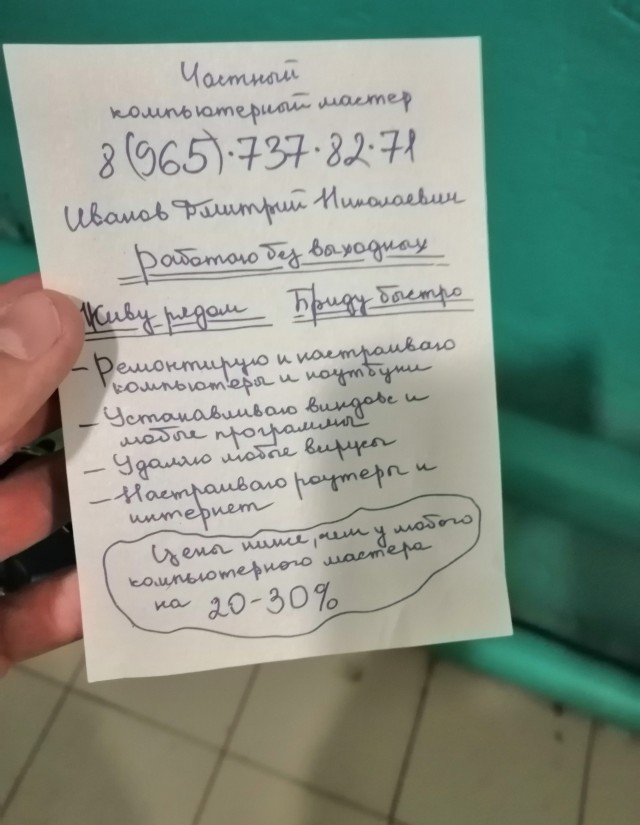 Частный
компьютерный мастер
8(965)·737·82·71
Иванов Дмитрий Николаевич
Работаю без выходных
Живу рядом Приду быстро
- Ремонтирую и настраиваю
компьютеры и ноутбуки
- Устанавливаю виндовс и
любые программы
- Удаляю любые вирусы
- Настраиваю роутеры и
интернет
Цены ниже, чем у любого
компьютерного мастера
на 20-30%